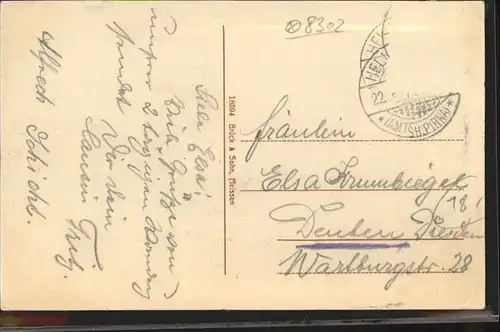 8302
Liebe Elsa!
Viele Grüße von
unserer 2 tägigen Wanderg
sendet Dir dein
Cousin Fritz.
Alfred Schicht.
18094 Brück & Sohn, Meissen
HEL
22.
*(AMTSH. PIRNA)*
Fräulein
Elsa Krumbiegel
Deuben Dresden
18
Wartburgstr. 28